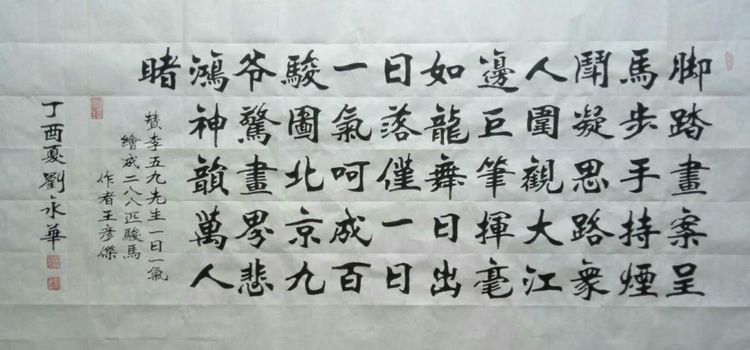 脚踏畫案呈
馬步手持煙
鬪凝思路衆
人圍觀大江
邊巨筆揮毫
如龍舞日出
日落僅一日
一氣呵成百
駿圖北京九
爷驚畫界悲
鴻神韻萬人
睹
贊李五九先生一日一氣
繪成二八八匹駿馬
作者王彦傑
丁酉夏劉永華